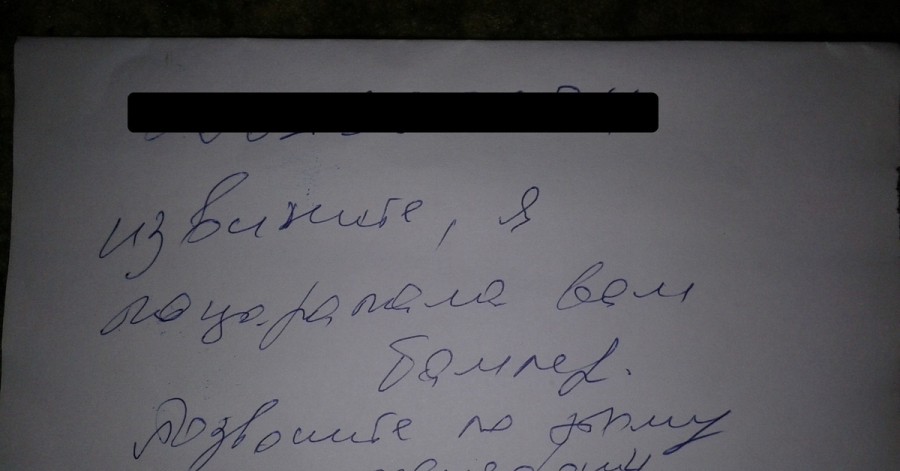 извините, я
поцарапала вам
бампер.
Позвоните по этому